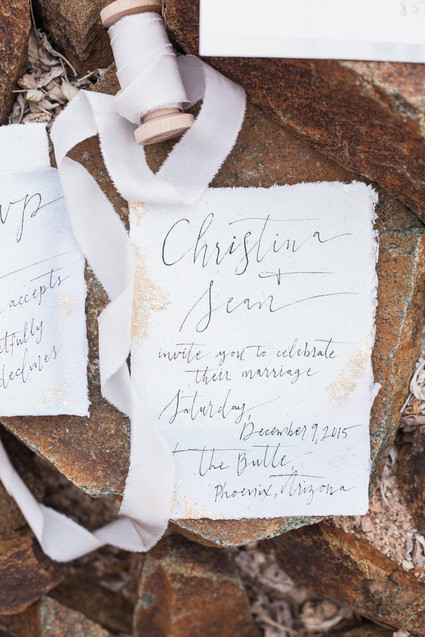 Christina
+
Sean
invite you to celebrate
their marriage
Saturday,
December 9, 2015
the Butte,
Phoenix, Arizona
vp
accepts
tfully
declines